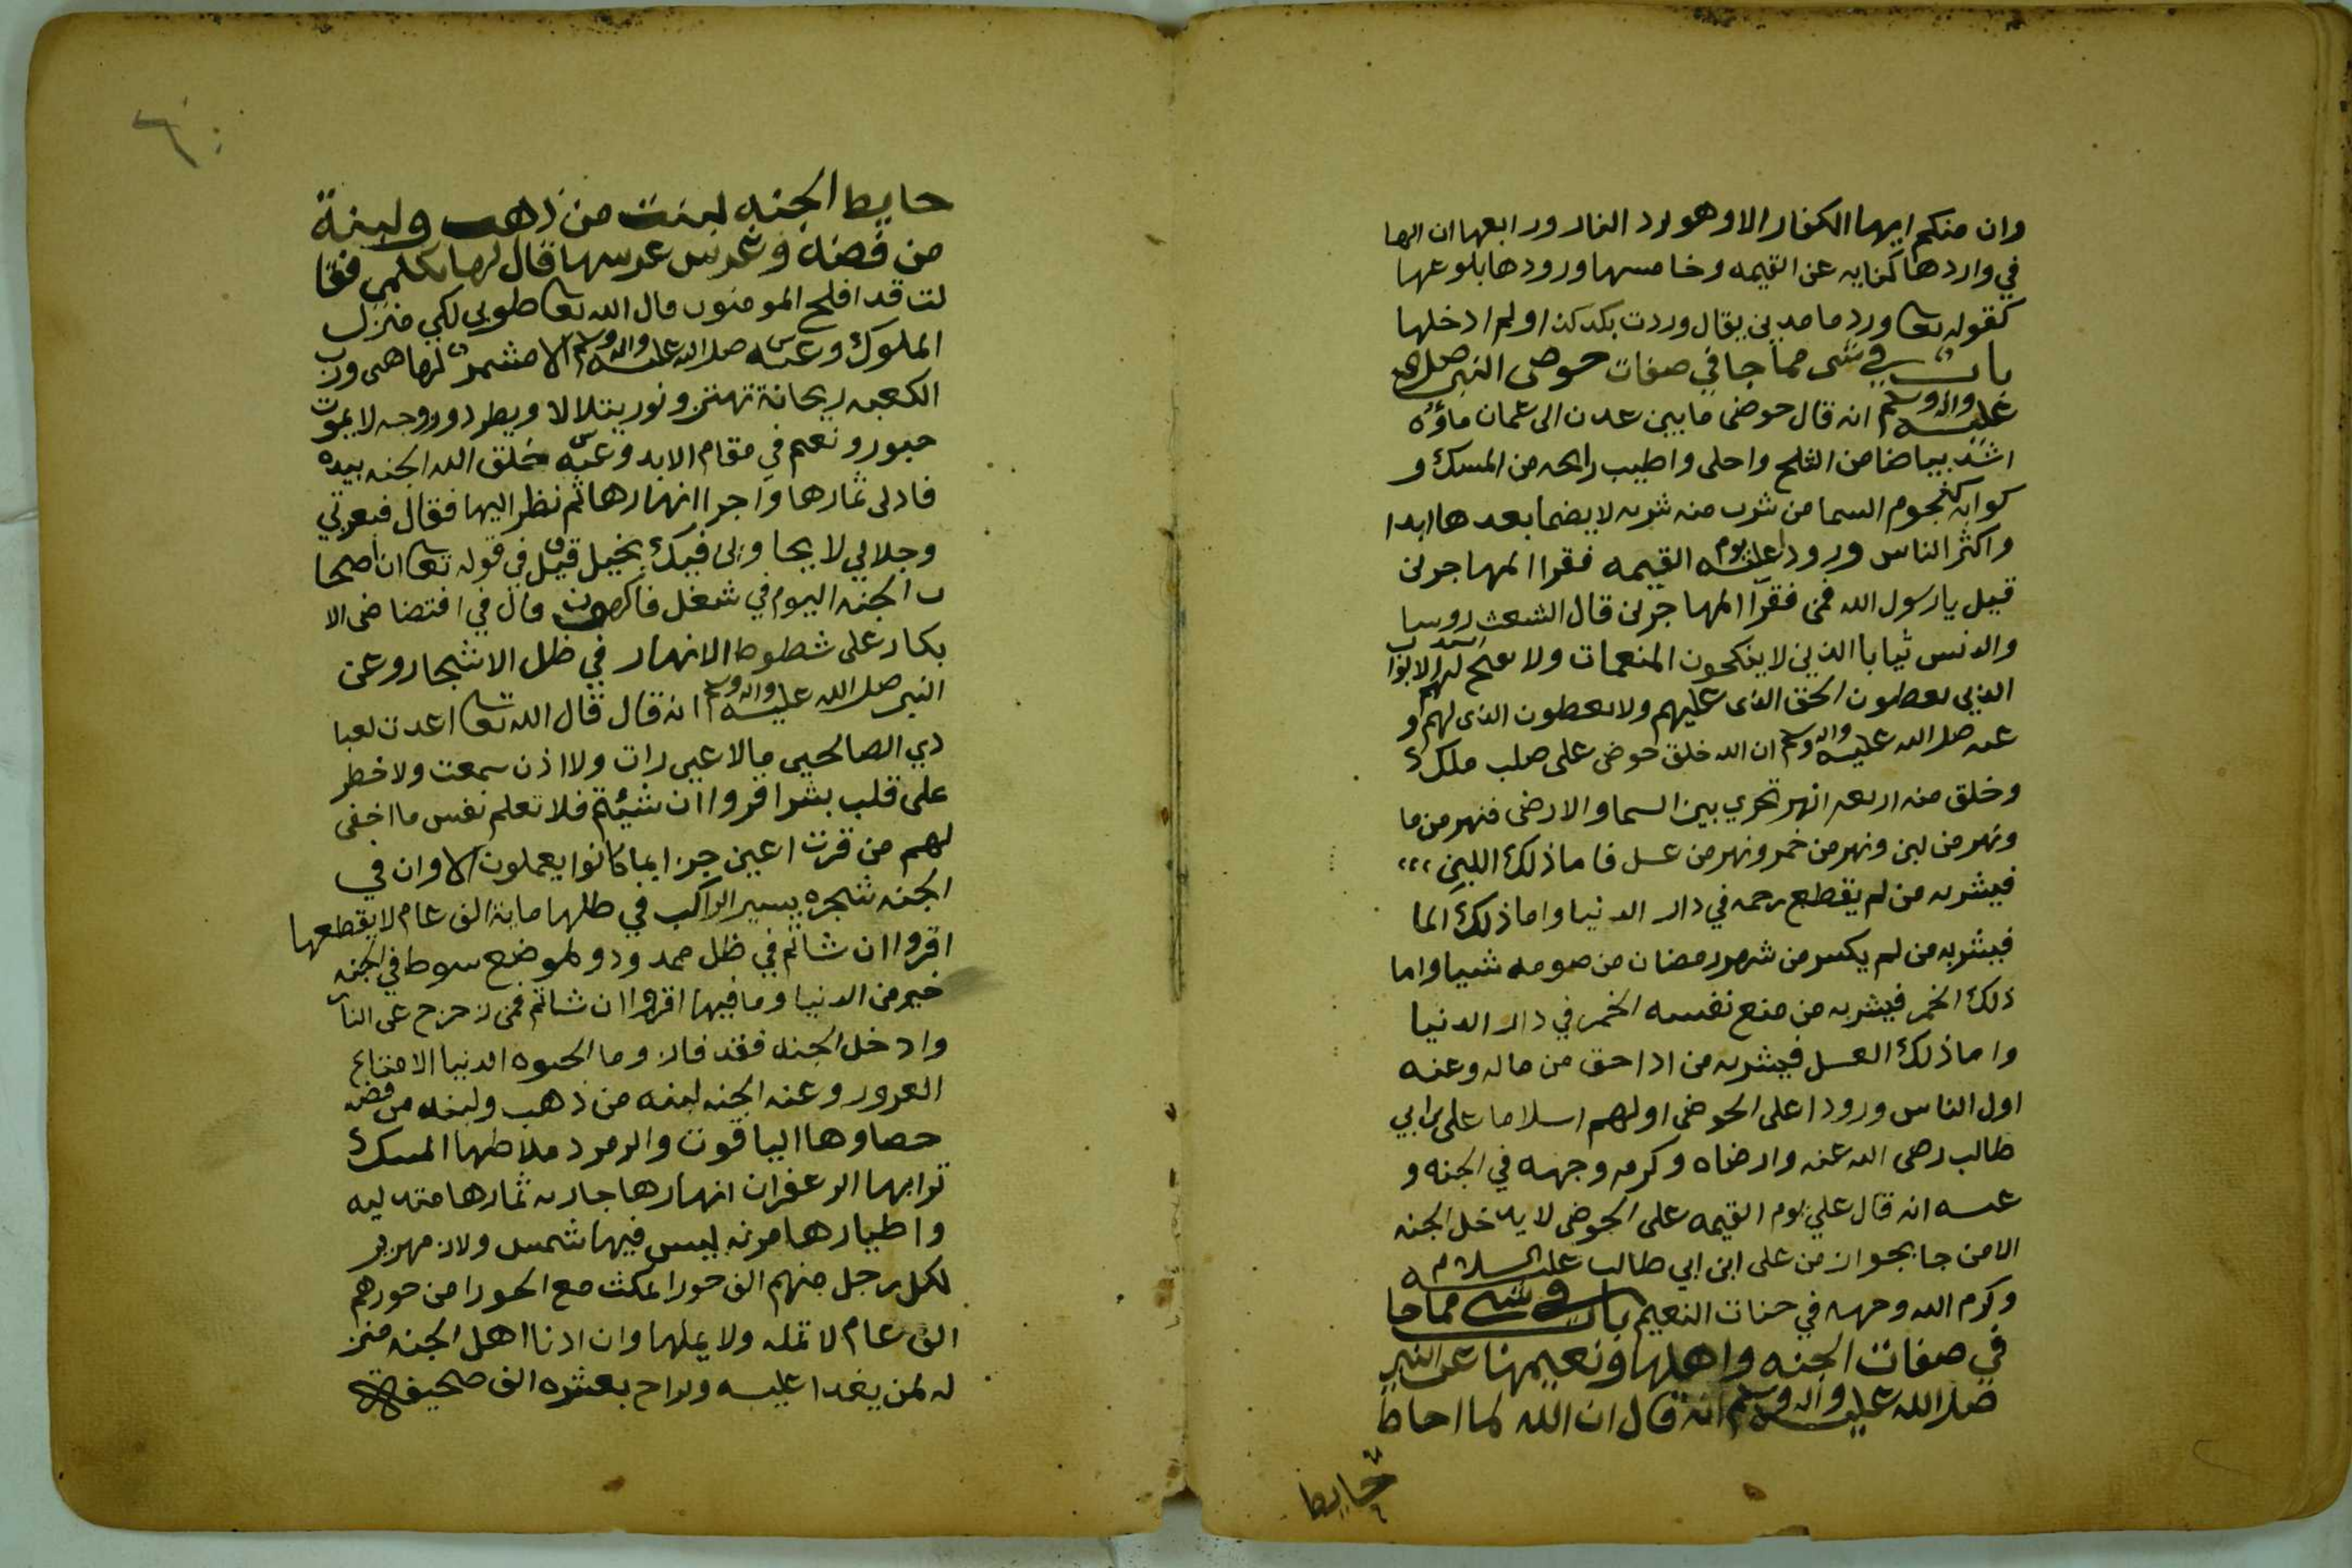 وان منكم ايها الكفار الا وهو يرد النار ورابعها ان الها
في واردها كنايه عن القيمه وخامسها ورودها بلوغها
كقوله تعا ورد ما مدين يقال وردت بلد كذا ولم ادخلها
باب في شي مما جا في صفات حوض النبي صلى الله
عليه واله وسلم انه قال حوضي ما بين عدن الى عمان ماؤه
اشد بياضا من الثلج واحلى واطيب رايحه من المسك و
كوابه كنجوم السما من شرب منه شربه لا يضما بعدها ابدا
واكثر الناس ورودا عليه يوم القيمه فقرا المهاجرين
قيل يا رسول الله فمن فقرآ المهاجرين قال الشعث روسا
والدنس ثيابا الذين لا ينكحون المنعمات ولا تفتح لهم ابواب السدد
الذين يعطون الحق الذي عليهم ولا يعطون الذي لهم و
عنه صلى الله عليه واله وسلم ان الله خلق حوضي على صلب ملك
وخلق منه اربعه انهر تجري بين السما والارض فنهر من ما
ونهر من لبن ونهر من خمر ونهر من عسل فاما ذلك اللبن
فيشربه من لم يقطع رحمه في دار الدنيا واما ذلك الما
فيشربه من لم يكسر من شهر رمضان من صومه شيا واما
ذلك الخمر فيشربه من منع نفسه الخمر في دار الدنيا
واما ذلك العسل فيشربه من ادا حق من ماله وعنه
اول الناس ورودا على الحوض اولهم اسلاما علي بن ابي
طالب رضي الله عنه وارضاه وكرم وجهه في الجنه و
عنه انه قال علي يوم القيمه على الحوض لا يدخل الجنه
الا من جا بجواز من علي ابن ابي طالب عليه السلام
وكرم الله وجهه في جنات النعيم باب في شي مما جا
في صفات الجنه واهلها ونعيمها عن النبي
صلى الله عليه واله وسلم انه قال ان الله لما احاط
حايط
حايط الجنه لبنت من ذهب ولبنة
من فضة وغرس غرسها قال لها تكلمي فقا
لت قد افلح المومنون قال الله تعا طوبى لكي منزل
الملوك وعنه صلى الله عليه واله وسلم الا مشمر لها هي ورب
الكعبه ريحانة تهتز ونور يتلالا ونهر يطرد وزوجه لا تموت
حبور ونعيم في مقام الابد وعنه خلق الله الجنه بيده
فادلى ثمارها واجرا انهارها ثم نظر اليها فقال فبعزتي
وجلالي لا يجاورني فيك بخيل قيل في قوله تعا ان اصحا
ب الجنه اليوم في شغل فاكهون قال في افتضاض الا
بكار على شطوط الانهار في ظل الاشجار وعن
النبي صلى الله عليه واله وسلم انه قال قال الله تعا اعدت لعبا
دي الصالحين ما لا عين رات ولا اذن سمعت ولا خطر
على قلب بشر اقروا ان شيئتم فلا تعلم نفس ما اخفى
لهم من قرت اعين جزا بما كانوا يعملون الا وان في
الجنه شجره يسير الراكب في ظلها ماية الف عام لا يقطعها
اقروا ان شاتم في ظل ممدود ولموضع سوط في الجنه
خير من الدنيا وما فيها اقروا ان شاتم فمن زحزح عن النار
وادخل الجنه فقد فاز وما الحيوه الدنيا الا متاع
الغرور وعنه الجنه لبنه من ذهب ولبنه من فضه
حصاوها الياقوت والزمرد ملاطها المسك
ترابها الزعفران انهارها جاريه ثمارها متدليه
واطيارها مرنه ليس فيها شمس ولا زمهرير
لكل رجل منهم الف حورا يمكث مع الحورا من حورهم
الف عام لا تمله ولا يملها وان ادنا اهل الجنه منز
له لمن يغدا عليه ويراح بعشره الف صحيفة